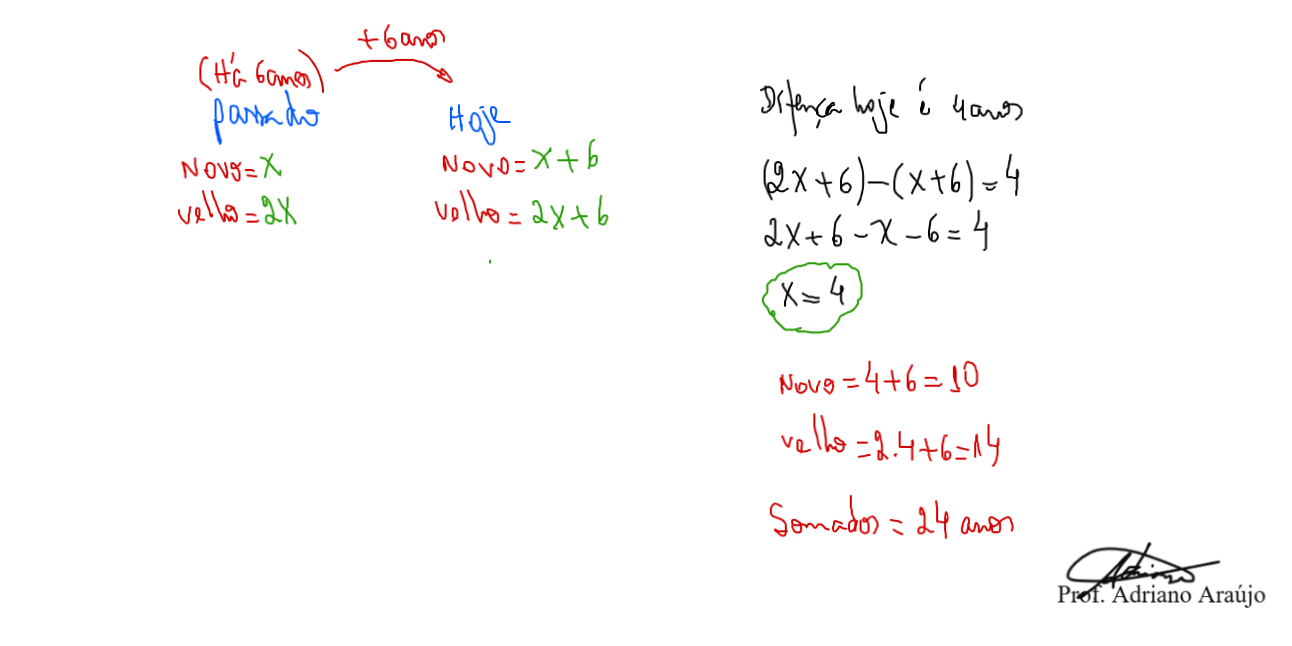 +6 anos
(Há 6 anos)
passado
Novo = x
velho = 2x
Hoje
Novo = x + 6
velho = 2x + 6
Difença hoje é 4 anos
(2x + 6) - (x + 6) = 4
2x + 6 - x - 6 = 4
x = 4
Novo = 4 + 6 = 10
velho = 2.4 + 6 = 14
Somados = 24 anos
Adriano
Prof. Adriano Araújo